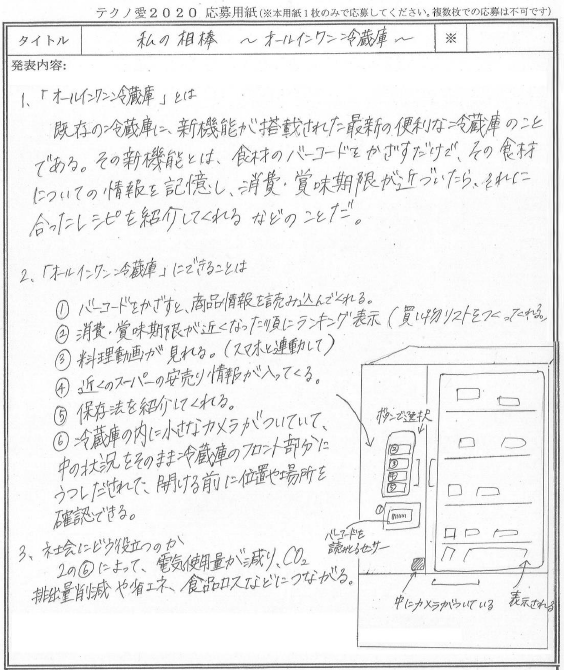 テクノ愛2020 応募用紙(※本用紙1枚のみで応募してください。複数枚での応募は不可です)
タイトル 私の相棒 ～オールインワン冷蔵庫～ ※
発表内容:
1、「オールインワン冷蔵庫」とは
既存の冷蔵庫に、新機能が搭載された最新の便利な冷蔵庫のこと
である。その新機能とは、食材のバーコードをかざすだけで、その食材
についての情報を記憶し、消費・賞味期限が近づいたら、それに
合ったレシピを紹介してくれるなどのことだ。
2、「オールインワン冷蔵庫」にできることは
① バーコードをかざすと、商品情報を読み込んでくれる。
② 消費・賞味期限が近くなった順にランキング表示(買い物リストをつくってくれる。
③ 料理動画が見れる。(スマホと連動して)
④ 近くのスーパーの安売り情報が入ってくる。
⑤ 保存法を紹介してくれる。
⑥ 冷蔵庫の内に小さなカメラがついていて、
中の状況をそのまま冷蔵庫のフロント部分に
うつしだされて、開ける前に位置や場所を
確認できる。
3、社会にどう役立つのか
2の⑥によって、電気使用量が減り、CO2
排出量削減や省エネ、食品ロスなどにつながる。
ボタンで選択
②
③
④
⑤
バーコードを
読みとるセンサー
中にカメラがついている
表示される